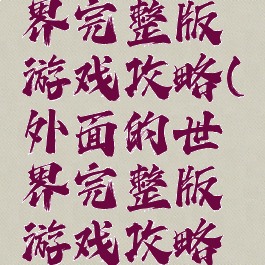 界完整版
游戏攻略(
外面的世
界完整版
游戏攻略